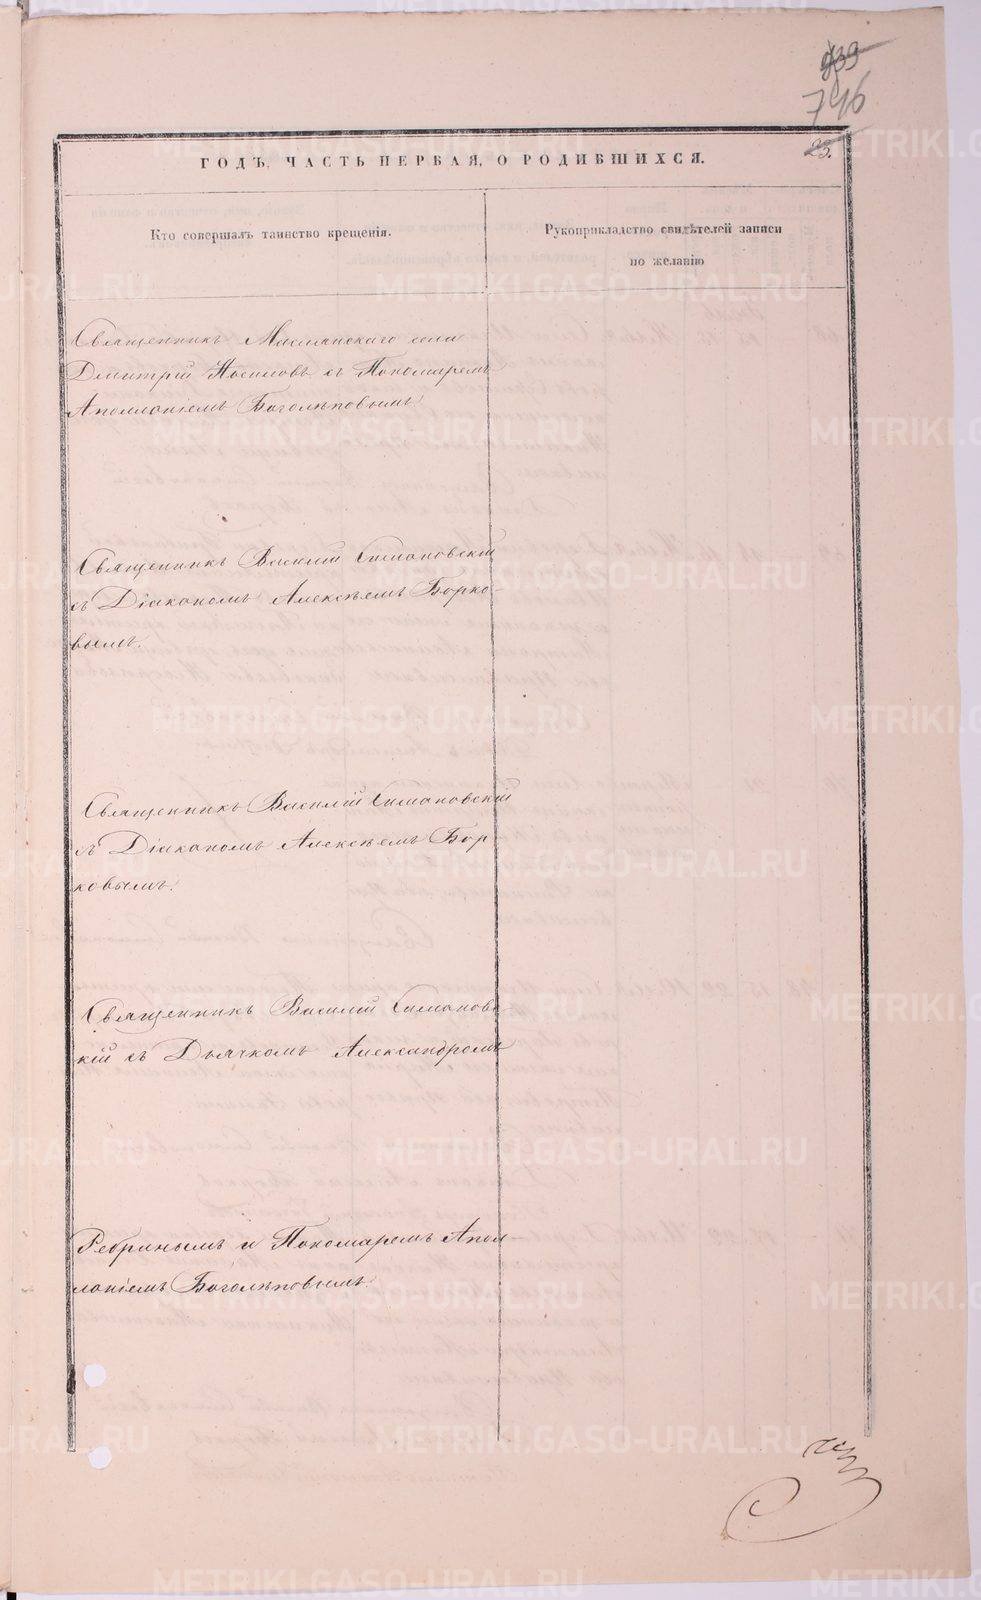 939
796
23.
ГОДЪ, ЧАСТЬ ПЕРВАЯ, О РОДИВШИХСЯ.
Кто совершалъ таинство крещенія.
Рукоприкладство свидѣтелей записи
по желанію
Священникъ Маслянскаго села
Дмитрій Носиловъ съ Пономаремъ
Аполлоніемъ Боголѣповымъ.
Священникъ Василій Симановскій
съ Діакономъ Алексѣемъ Борко-
вымъ.
Священникъ Василій Симановскій
съ Діакономъ Алексѣемъ Бор-
ковымъ.
Священникъ Василій Симановс-
кій съ Дьячкомъ Александромъ
Ребринымъ и Пономаремъ Апол-
лоніемъ Боголѣповымъ.
METRIKI.GASO-URAL.RU